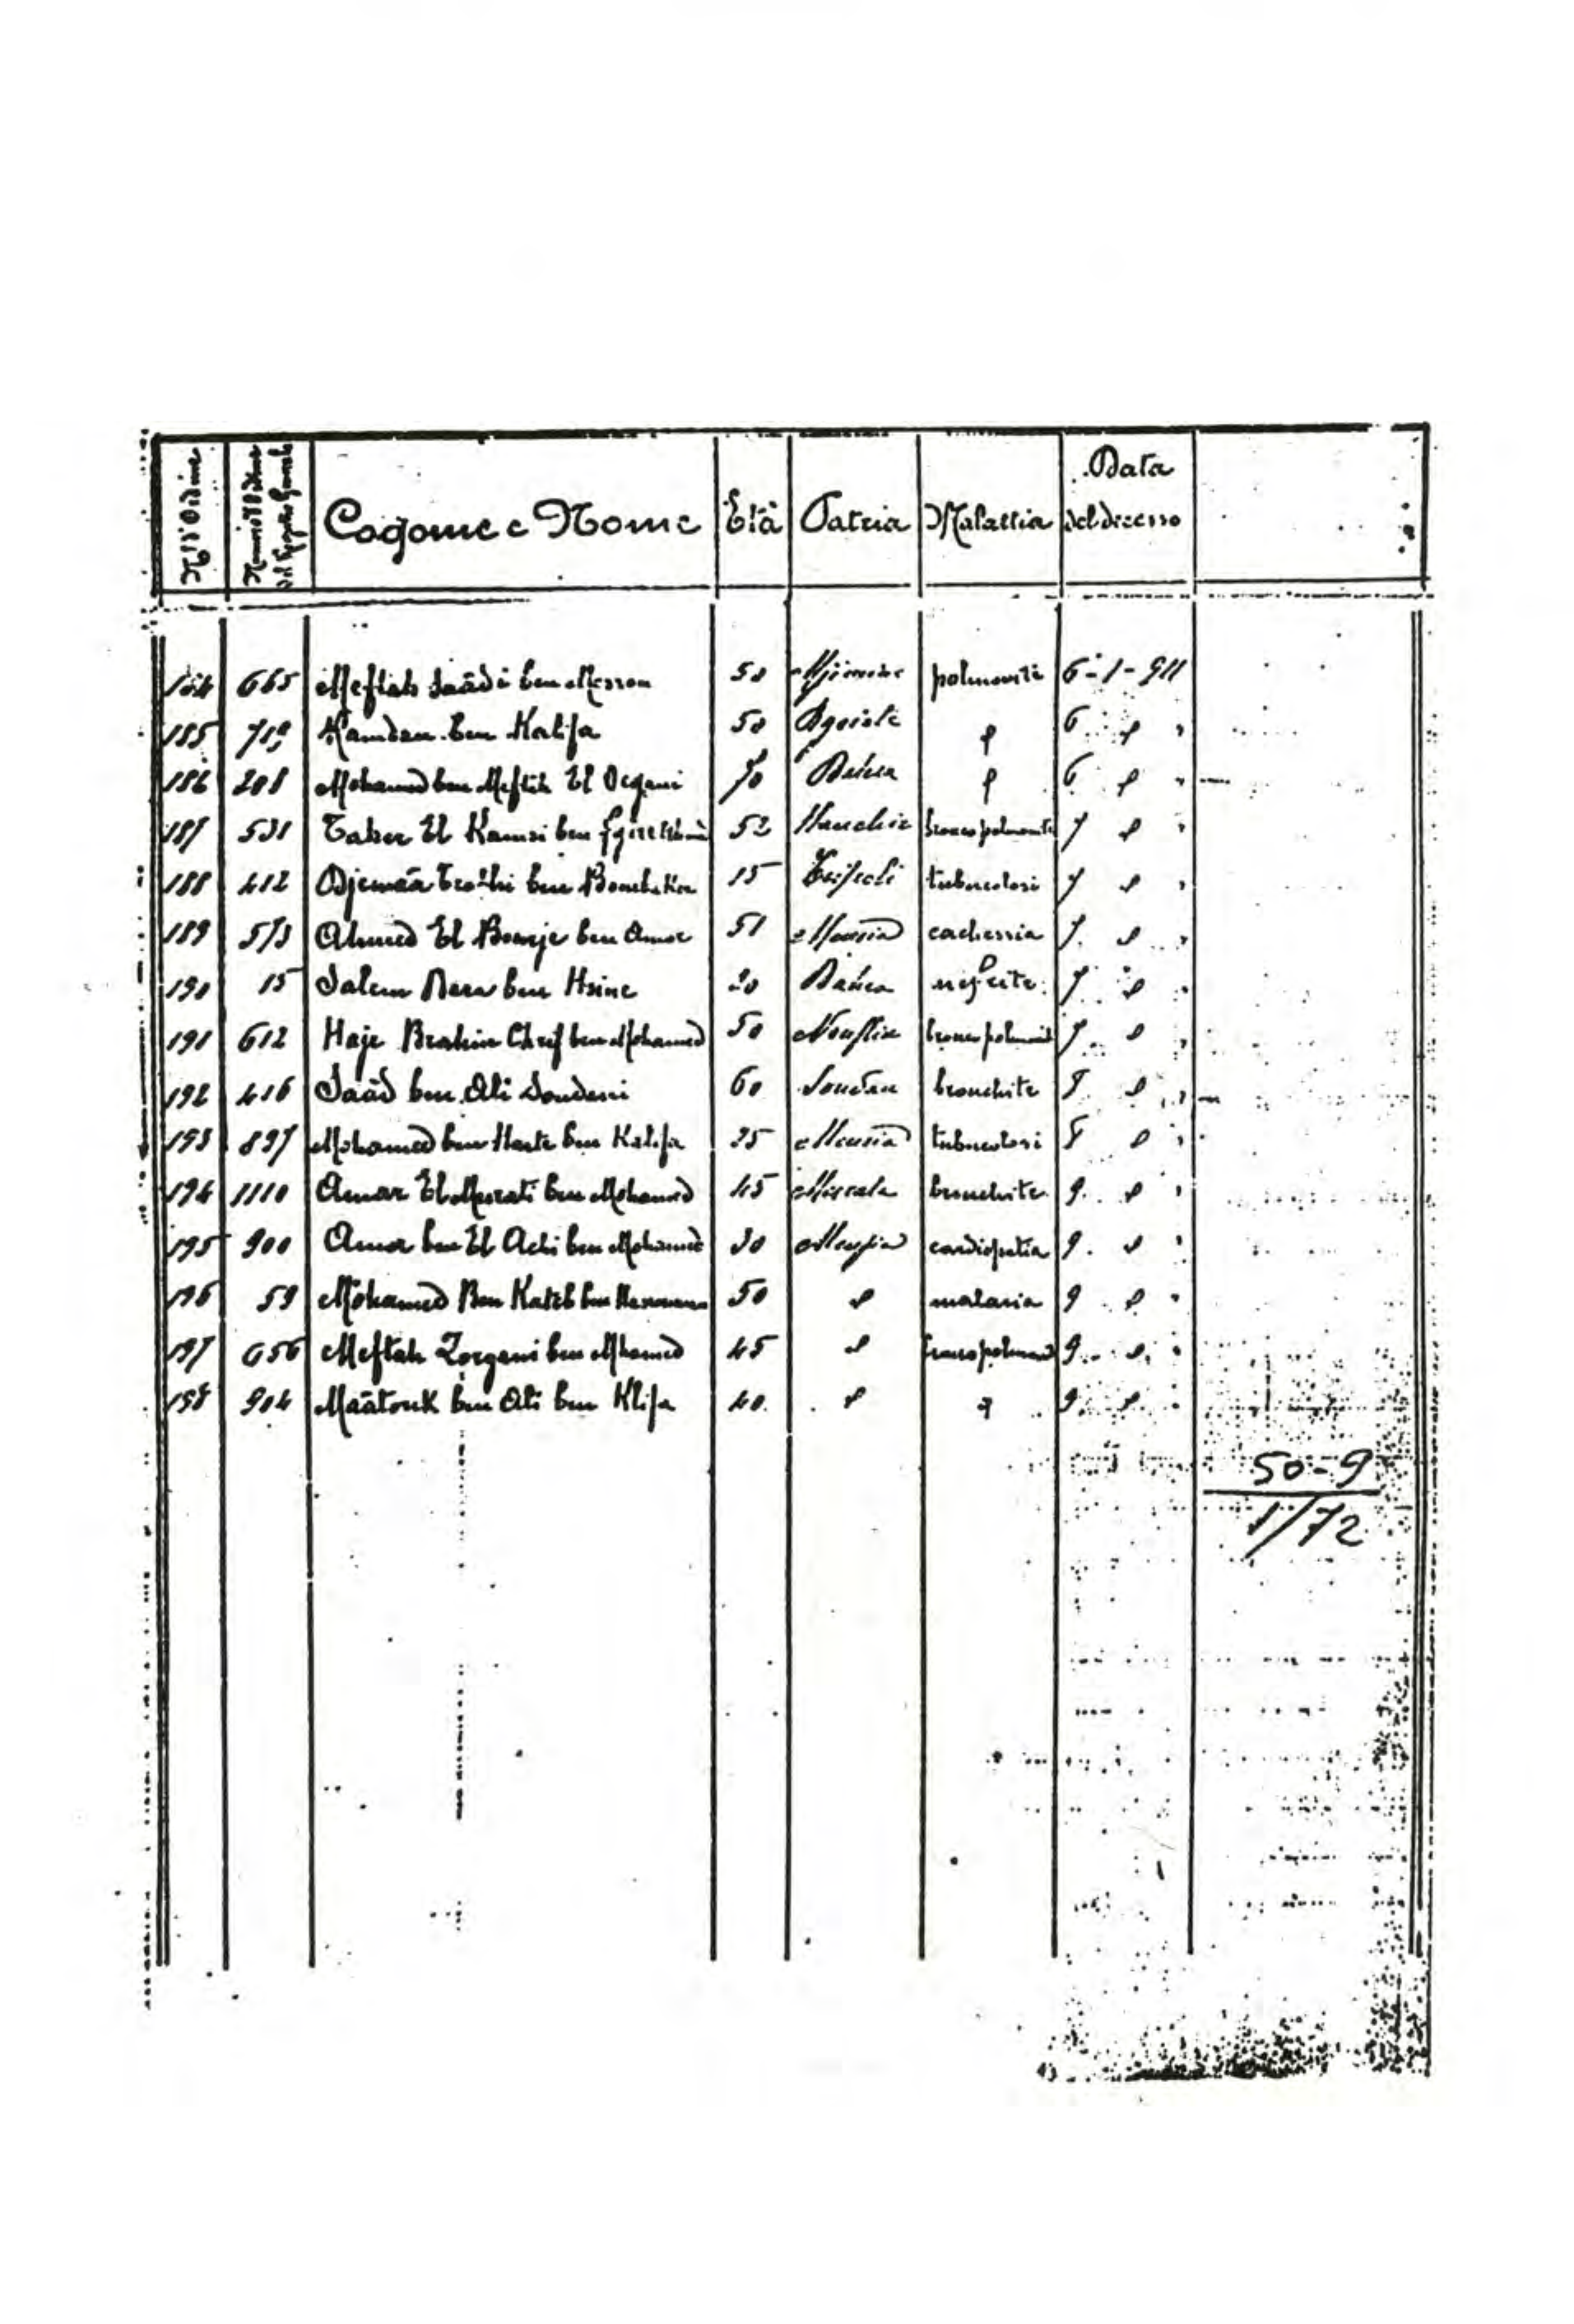 N.° d'Ordine Numero d'Ordine del Registro Generale Cogome e Nome Età Patria Malattia Data del decesso
184 665 Meftah Saâdi ben Messou 50 polmonite 6-1-911
185 719 Hamdan ben Kalifa 50 " 6 " "
186 208 Mohamed ben Meftah El Organi 70 " 6 " "
187 531 Taher El Kamsi ben 52 Hanchir broncopolmonite 7 " "
188 412 Djemâa Trolhi ben Boubaker 15 Tripoli tubercolosi 7 " "
189 573 Ahmed El Bourje ben Amor 51 cachessia 7 " "
190 15 Salem ben Hsine 20 nefrite 7 "
191 612 Haje Brahim Chrif ben Mohamed 50 Nouflia broncopolmonit 7 " "
192 416 Saâd ben Ali Soudani 60 Soudan bronchite 8 " "
193 897 Mohamed ben ben Kalifa 25 tubercolosi 8 " "
194 1110 Amar El Mesrati ben Mohamed 45 Misrata bronchite 9 " "
195 900 Amor ben El Achi ben Mohamed 30 cardiopatia 9 " "
196 59 Mohamed Ben Kateb ben 50 " malaria 9 " "
197 656 Meftah Zorgani ben Mohamed 45 " broncopolmonit 9 " "
198 904 Maâtouk ben Ali ben Klifa 40 " " 9 "
50-9
1/72